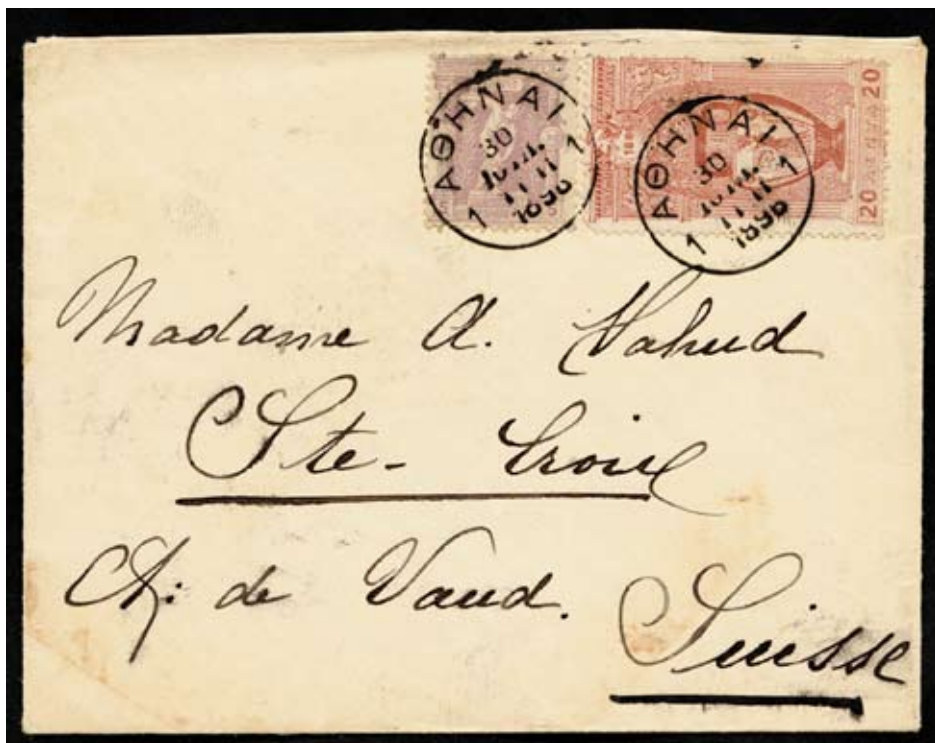 ΑΘΗΝΑΙ
30
ΙΟΥΛ.
1 1
ΠΜ
1896
ΑΘΗΝΑΙ
30
ΙΟΥΛ.
1 1
1896
5
1896
20 20
Madame A. Vahud
Ste-Croix
Ct: de Vaud.
Suisse